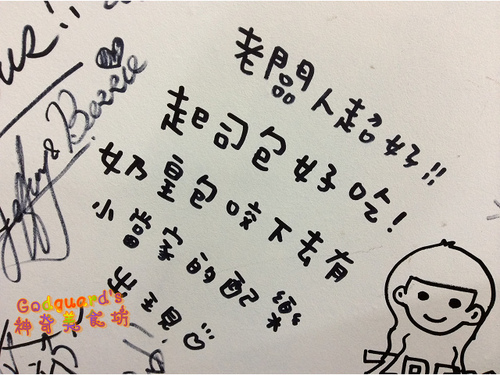 老闆人超好!!
起司包好吃!
奶皇包咬下去有
小當家的配樂
出現♡
Bozzie
Godguard's
神奇美食坊